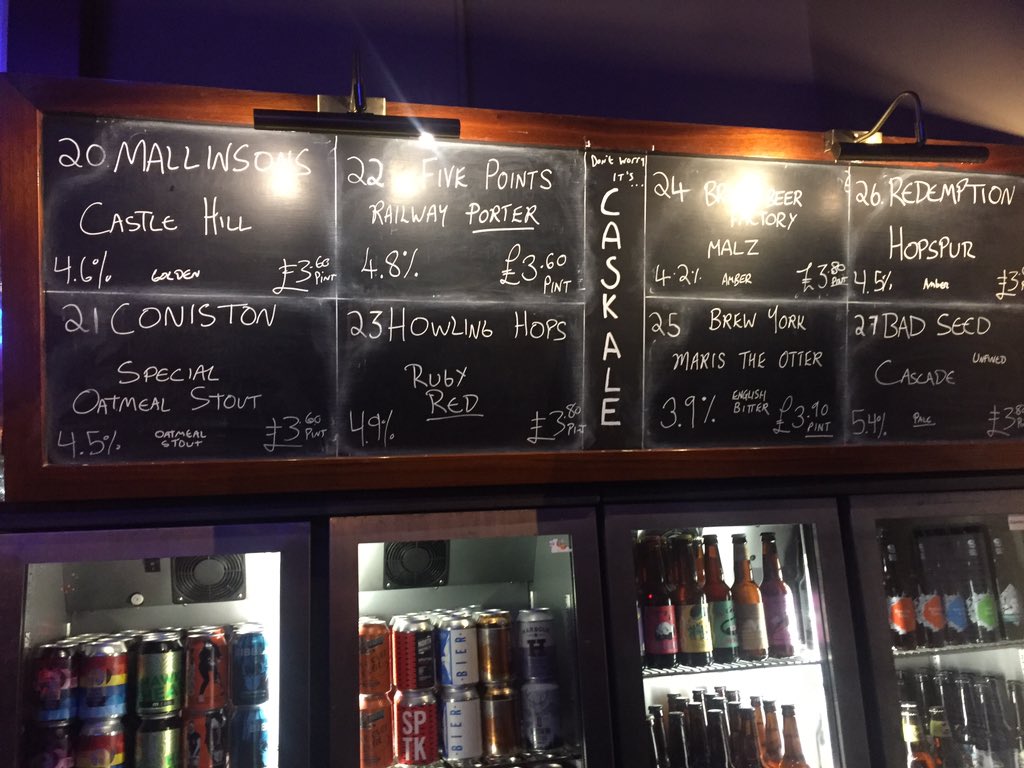 20 MALLINSONS
CASTLE HILL
4.6% GOLDEN £3.60 PINT
21 CONISTON
SPECIAL
OATMEAL STOUT
4.5% OATMEAL STOUT £3.60 PINT
22 FIVE POINTS
RAILWAY PORTER
4.8% £3.60 PINT
23 HOWLING HOPS
RUBY
RED
4.9% £3.80 PINT
Don't worry
it's...
CASK ALE
24 BEER
FACTORY
MALZ
4.2% AMBER £3.80 PINT
25 BREW YORK
MARIS THE OTTER
3.9% ENGLISH BITTER £3.90 PINT
26. REDEMPTION
HOPSPUR
4.5% Amber £3
27 BAD SEED
UNFINED
CASCADE
5.4% PALE £3.80
SP
TK
BIER
BIER
HARBOUR